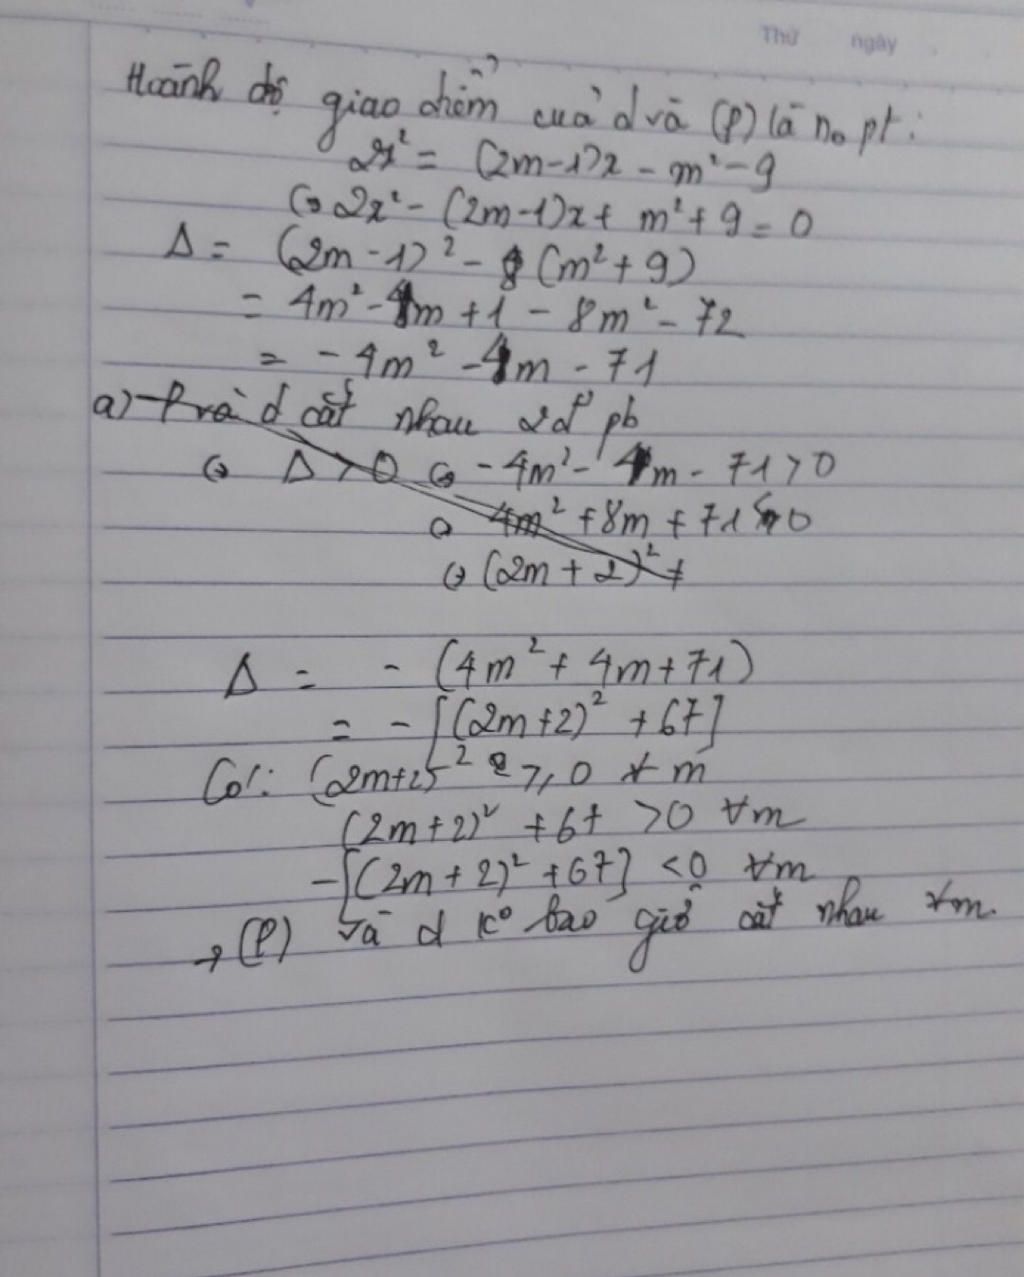 Thứ ngày
Hoành độ giao điểm của d và (P) là n₀ pt:
2x² = (2m-1)x - m² - 9
⇔ 2x² - (2m-1)x + m² + 9 = 0
Δ = (2m-1)² - 8(m²+9)
= 4m² - 4m + 1 - 8m² - 72
= -4m² - 4m - 71
a) P và d cắt nhau 2đ' pb
⇔ Δ > 0 ⇔ -4m² - 4m - 71 > 0
⇔ 4m² + 8m + 71 < 0
⇔ (2m+2)² +
Δ = -(4m² + 4m + 71)
= -[(2m+2)² + 67]
Có: (2m+2)² ≥ 0 ∀m
(2m+2)² + 67 > 0 ∀m
-[(2m+2)² + 67] < 0 ∀m
→ (P) và d k° bao giờ cắt nhau ∀m.